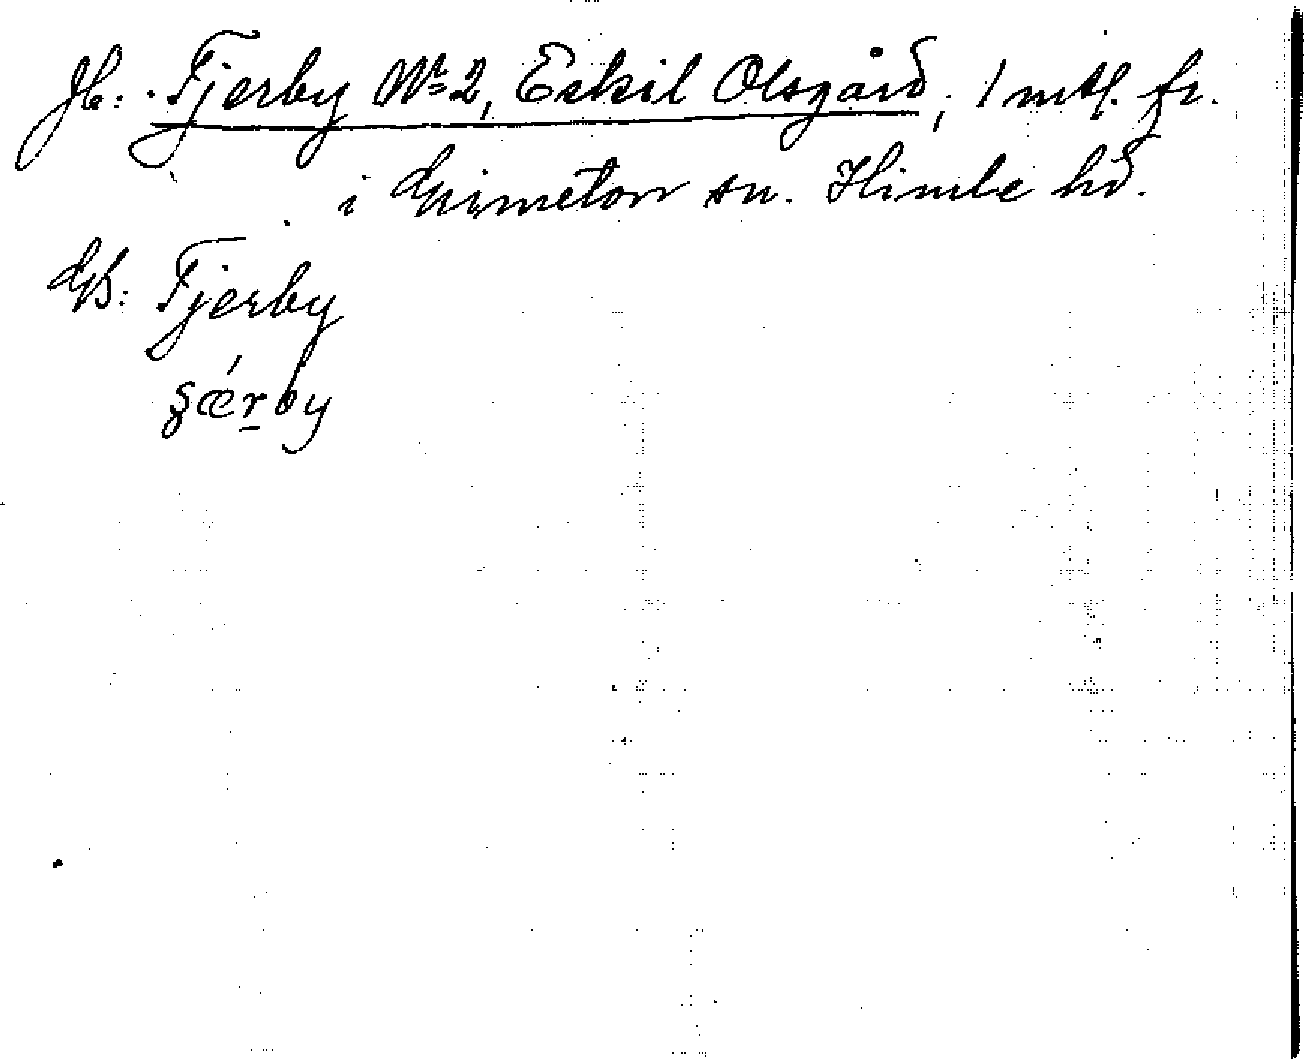 Jb: Tjerby Nr 2, Eskil Olsgård, 1 mtl. fr.
i Grimeton sn. Himle hd.
GB: Tjerby